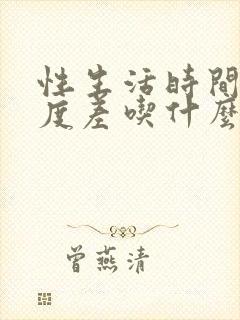 性生活時間
度差喫什麼
曾燕清